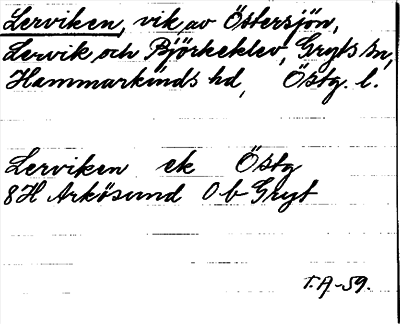 Lerviken, vik av Östersjön,
Lervik och Björkeklev, Gryts sn,
Hammarkinds hd, Östg. l.
Lerviken ek Östg
8H Arkösund 0b Gryt
T.A-59.